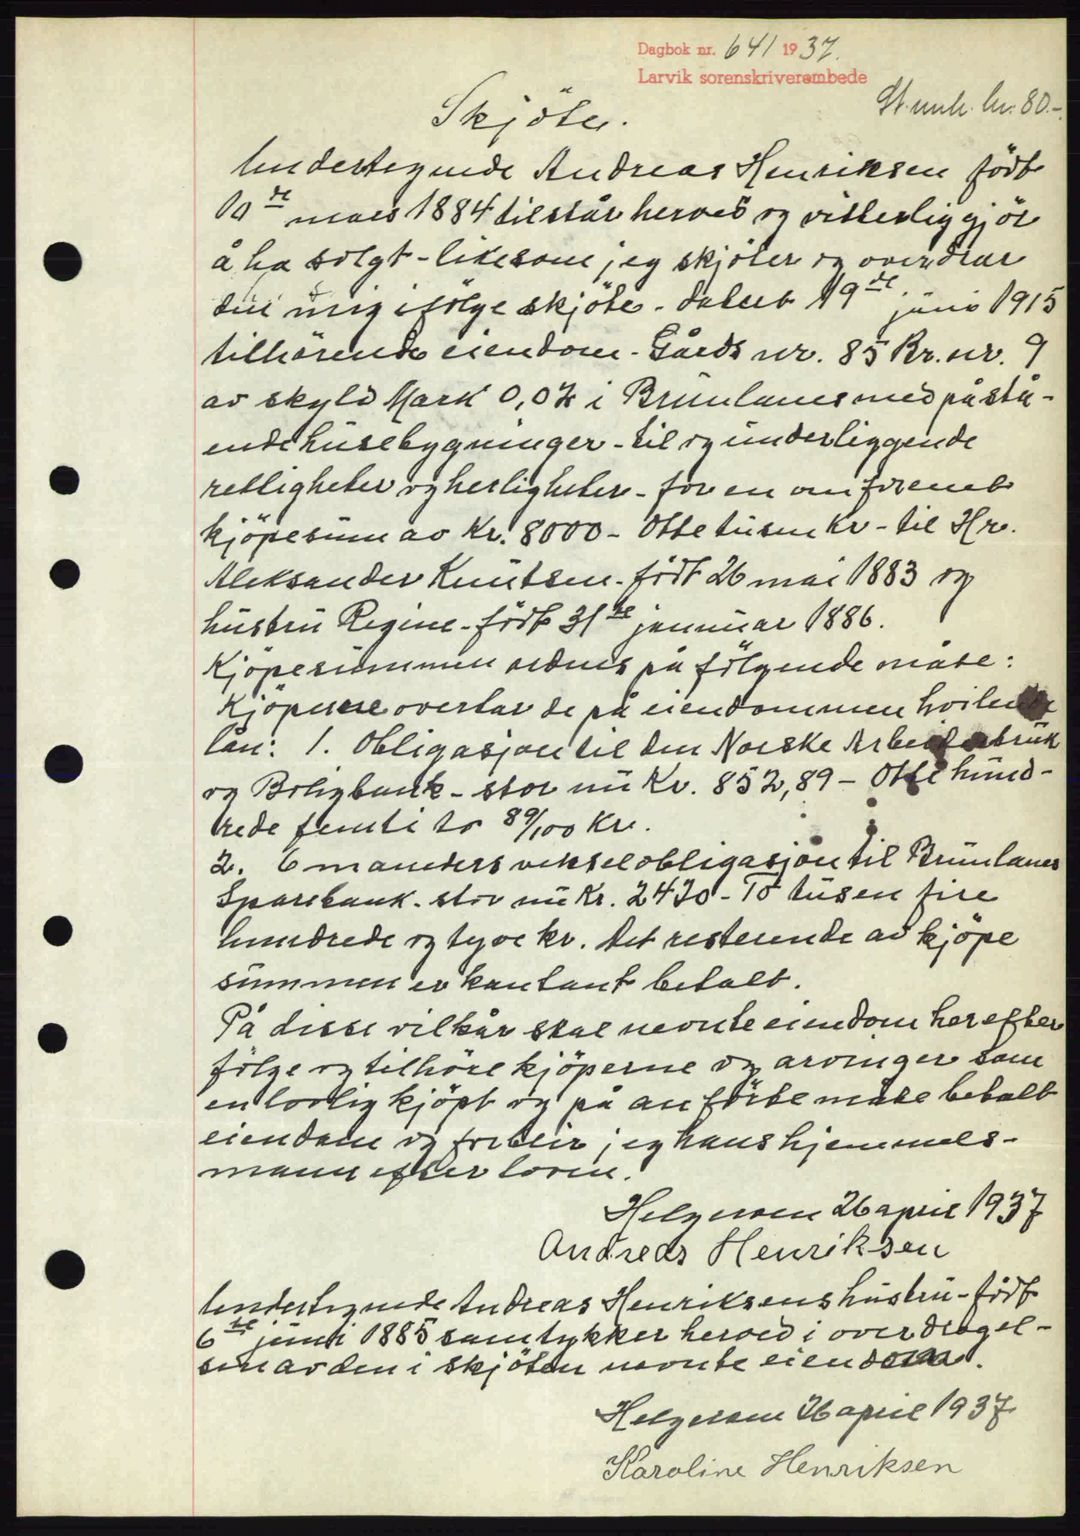 Dagbok nr. 641 1937.
Larvik sorenskriverembede
St. mrk. kr. 80.-
Skjöte.
Undertegnede Andreas Henriksen födt
10de mars 1884 tilstår herved og vitterliggjör
å ha solgt - likesom jeg skjöter og overdrar
den mig ifölge skjöte - datert 19de juni 1915
tilhörende eiendom - Gårds nr. 85 Br. nr. 9
av skyld Mark 0,02 i Brunlanes med påstå-
ende husebygninger - til og underliggende
rettigheter og herligheter - for en omforenet
kjöpesum av Kr. 8000 - Otte tusen Kr - til Hr.
Aleksander Knutsen - födt 26 mai 1883 og
hustru Regine - födt 31te januar 1886.
Kjöpesummen ordnes på fölgende måte:
Kjöperne overtar de på eiendommen hvilende
lån: 1. Obligasjon til den Norske Arbeiderbruk
og Boligbank - stor nu Kr. 852,89 - Otte hund-
rede femti to 89/100 Kr.
2. 6 måneders vekselobligasjon til Brunlanes
Sparebank - stor nu Kr. 2420 - To tusen fire
hundrede og tyve kr. Det resterende av kjöpe
summen er kontant betalt.
På disse vilkår skal nevnte eiendom herefter
fölge og tilhöre kjöperne og arvinger som
en lovlig kjöpt og på anförte måte betalt
eiendom og forblir jeg hans hjemmels-
mann efter loven.
Helgeroen 26 april 1937
Andreas Henriksen
Undertegnede Andreas Henriksens hustru - födt
6te juni 1885 samtykker herved i overdragel-
sen av den i skjöten nevnte eiendom.
Helgeroen 26 april 1937
Karoline Henriksen